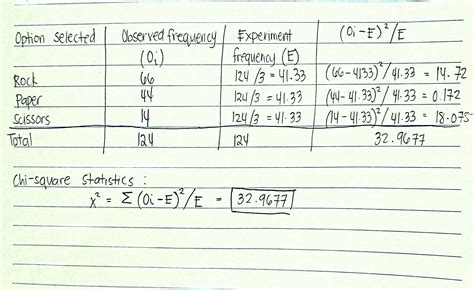 Option selected Observed frequency Experiment (Oi-E)²/E
(Oi) frequency (E)
Rock 66 124/3 = 41.33 (66-41.33)²/41.33 = 14.72
Paper 44 124/3 = 41.33 (44-41.33)²/41.33 = 0.172
Scissors 14 124/3 = 41.33 (14-41.33)²/41.33 = 18.075
Total 124 124 32.9677
Chi-square Statistics :
x² = Σ (Oi-E)²/E = 32.9677